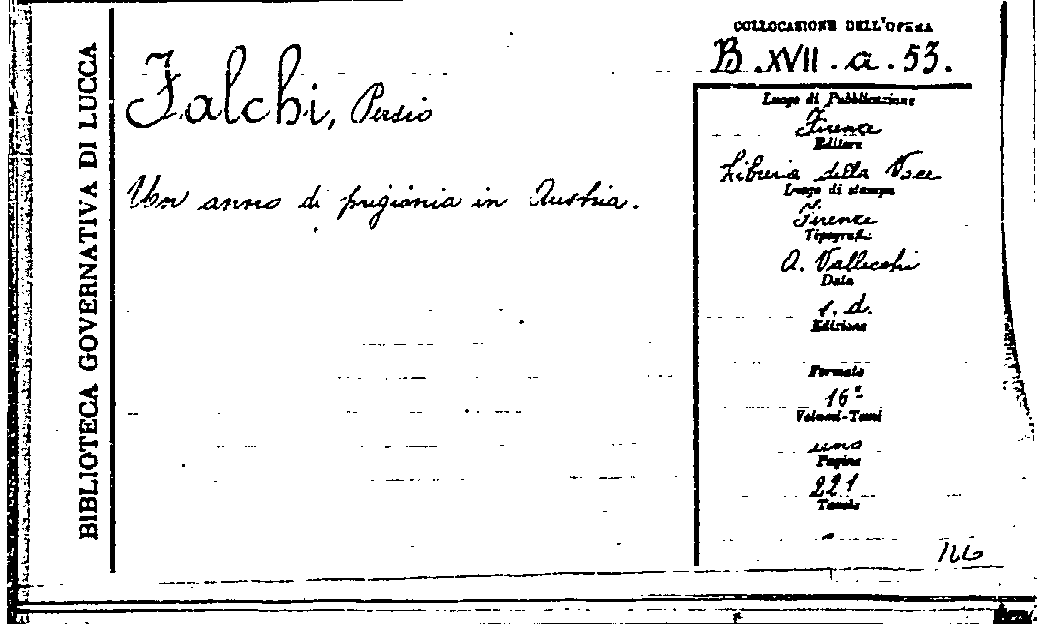 BIBLIOTECA GOVERNATIVA DI LUCCA
Falchi, Persio
Un anno di prigionia in Austria.
COLLOCAZIONE DELL'OPERA
B. XVII. a. 53.
Luogo di Pubblicazione
Firenze
Editore
Libreria della Voce
Luogo di stampa
Firenze
Tipografi:
A. Vallecchi
Data
s. d.
Edizione
Formato
16°
Volumi-Tomi
uno
Pagine
221
Tavole